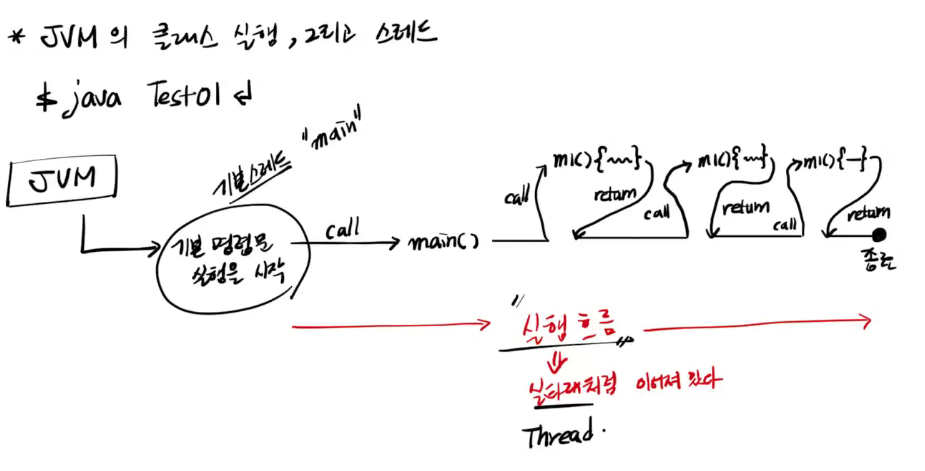 * JVM의 클래스 실행, 그리고 스레드
$ java Test01 ↲
JVM
기본스레드 "main"
기본 명령문
실행을 시작
call
main()
call
m1(){~~}
return
call
m1(){~~}
return
call
m1(){—}
return
종료
"실행 흐름"
⇓
실타래처럼 이어져 있다
Thread.